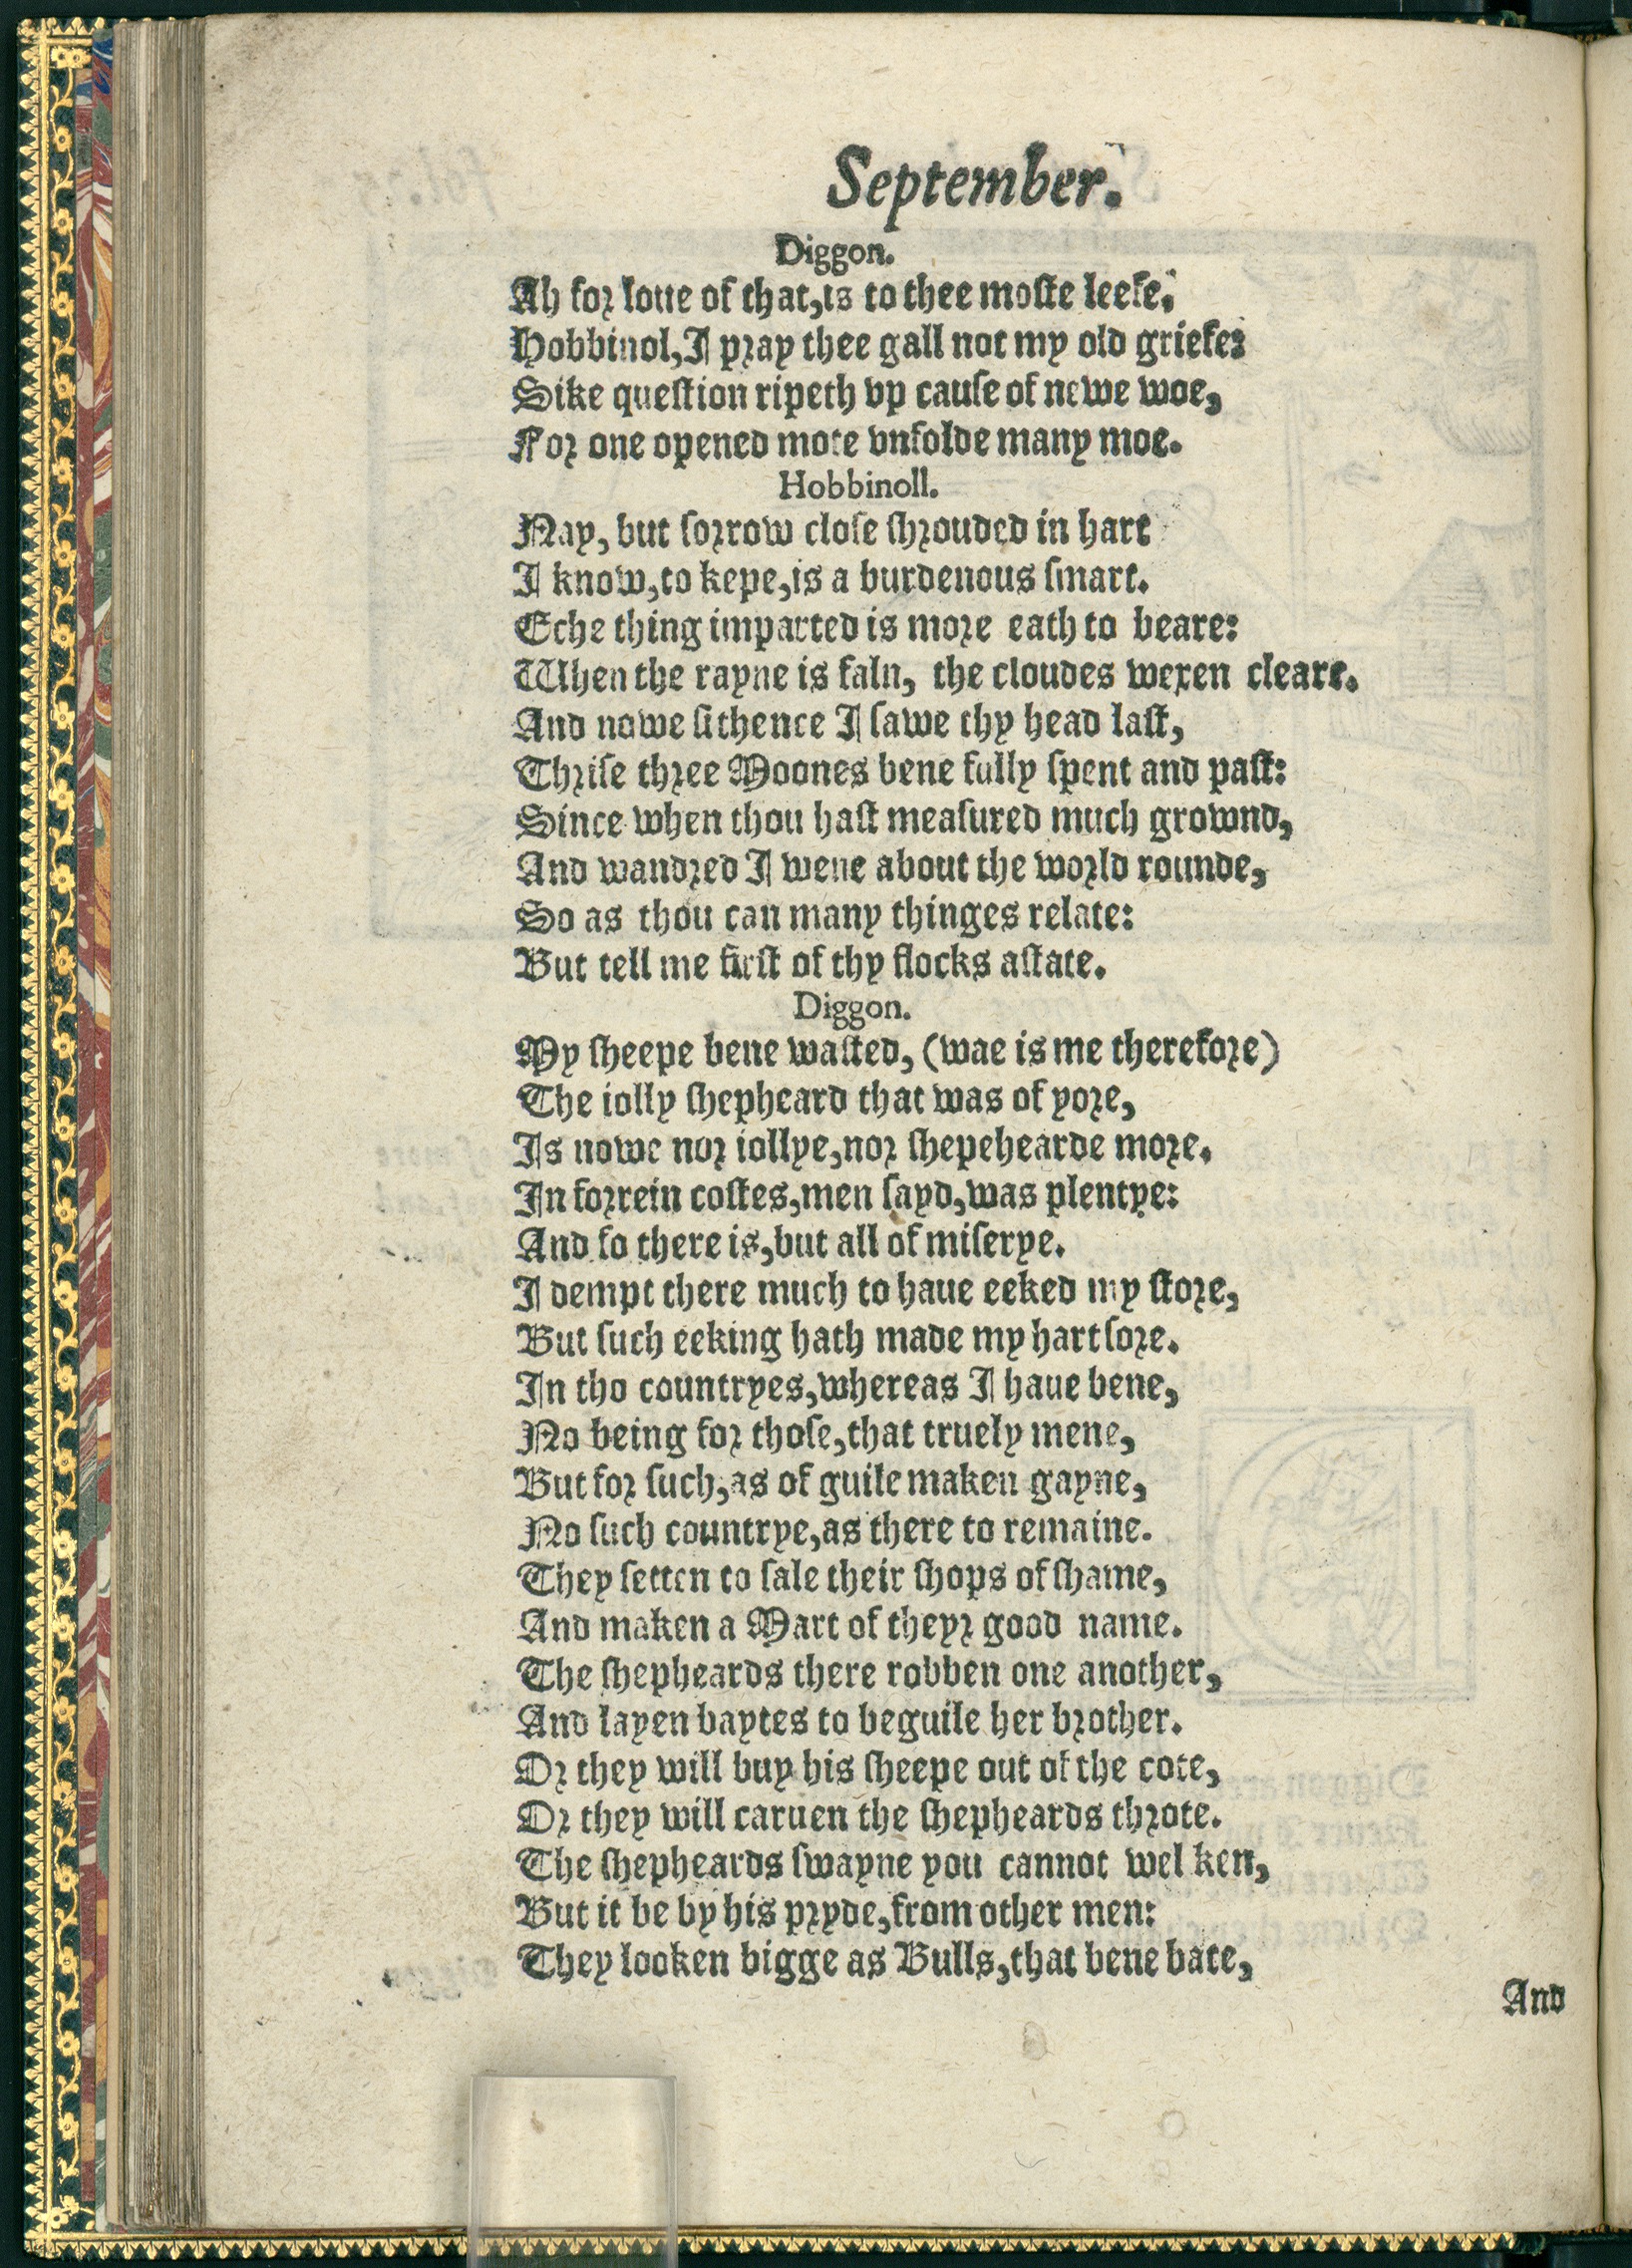 September.
Diggon.
Ah for loue of that, is to thee moste leefe,
Hobbinol, I pray thee gall not my old griefe:
Sike question ripeth vp cause of newe woe,
For one opened mote vnfolde many moe.
Hobbinoll.
Nay, but sorrow close shrouded in hart
I know, to kepe, is a burdenous smart.
Eche thing imparted is more eath to beare:
When the rayne is faln, the cloudes wexen cleare.
And nowe sithence I sawe thy head last,
Thrise three Moones bene fully spent and past:
Since when thou hast measured much grownd,
And wandred I wene about the world rounde,
So as thou can many thinges relate:
But tell me first of thy flocks astate.
Diggon.
My sheepe bene wasted, (wae is me therefore)
The iolly shepheard that was of yore,
Is nowe nor iollye, nor shepehearde more.
In forrein costes, men sayd, was plentye:
And so there is, but all of miserye.
I dempt there much to haue eeked my store,
But such eeking hath made my hart sore.
In tho countryes, whereas I haue bene,
No being for those, that truely mene,
But for such, as of guile maken gayne,
No such countrye, as there to remaine.
They setten to sale their shops of shame,
And maken a Mart of theyr good name.
The shepheards there robben one another,
And layen baytes to beguile her brother.
Or they will buy his sheepe out of the cote,
Or they will caruen the shepheards throte.
The shepheards swayne you cannot wel ken,
But it be by his pryde, from other men:
They looken bigge as Bulls, that bene bate,
And